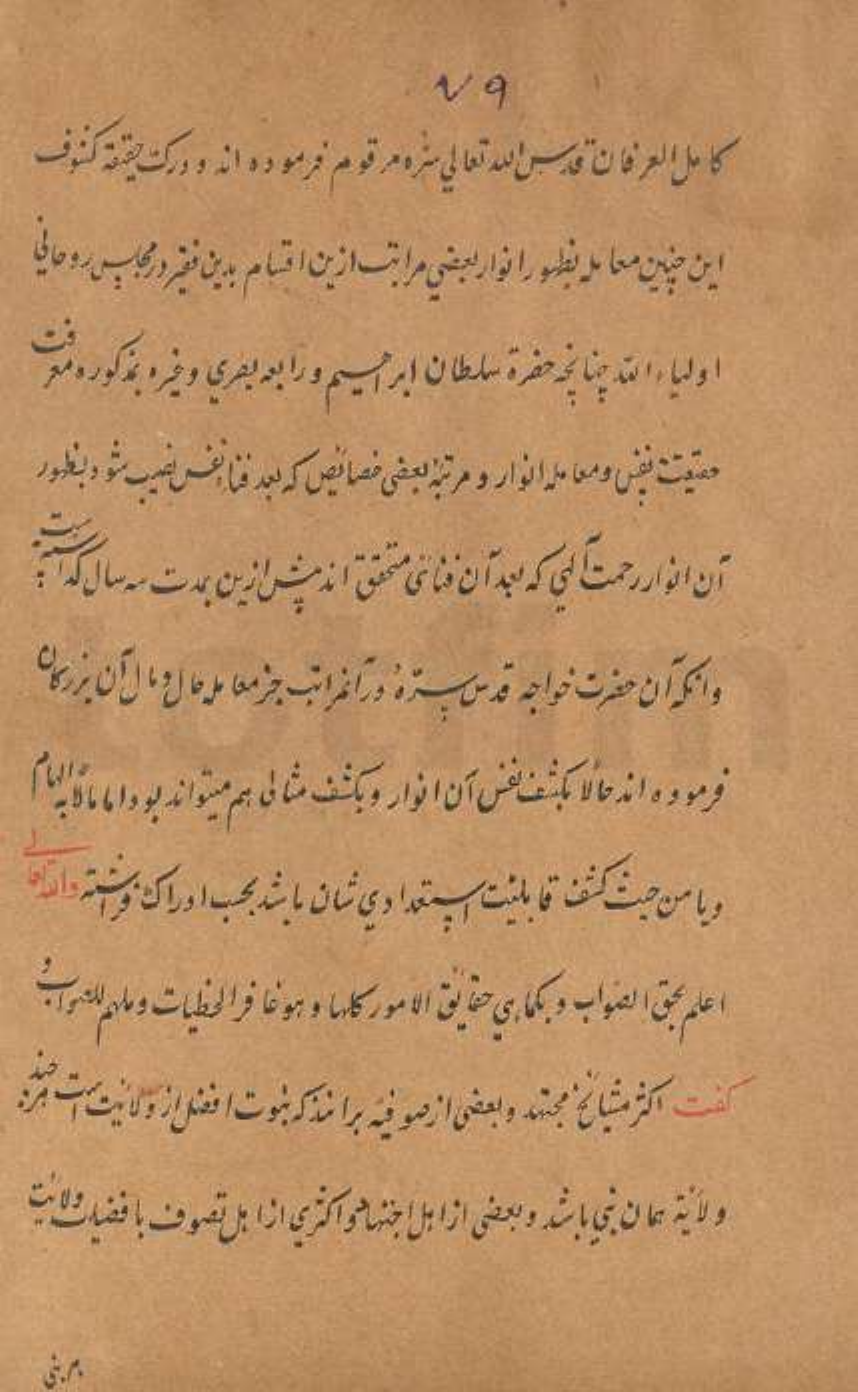 ۷۹
کامل العرفان قدس الله تعالی سره مرقوم فرموده اند و درک حقیقة کشوف
این چنین معامله بظهور انوار بعضی مراتب ازین اقسام بدین فقیر در مجلس روحانی
اولیاء الله چنانچه حضرة سلطان ابراهیم و رابعه بصری وغیره مذکوره معرفت
حقیقت نفس ومعامله انوار و مرتبۀ بعضی خصائص که بعد فنا نفس نصیب شود بظهور
آن انوار رحمت آلهی که بعد آن فنائی متحقق اند پیش ازین بمدت سه سال گذشته است
وانکه آن حضرت خواجه قدس سرّهٗ در آنمراتب جز معامله حال ومال آن بزرکان
فرموده اند حالًا بکشف نفس آن انوار و بکشف مثالی هم میتواند بود اما مالًا به الهام
ویا من حیث کشف قابلیّت استعدادی شان باشد بحسب ادراک فراشته والله تعالی
اعلم بحق الصّواب و بکماهی حقایق الامور کلها و هو غافر الخطیات و ملهم للصواب و
کفت اکثر مشایخ مجتهد و بعضی از صوفیه برانند که نبوت افضل از ولائیت است هرچند
ولایة همان نبی باشد و بعضی از اهل اجتهاد و اکثری از اهل تصوف با فضیلت ولائیت
بر نبی